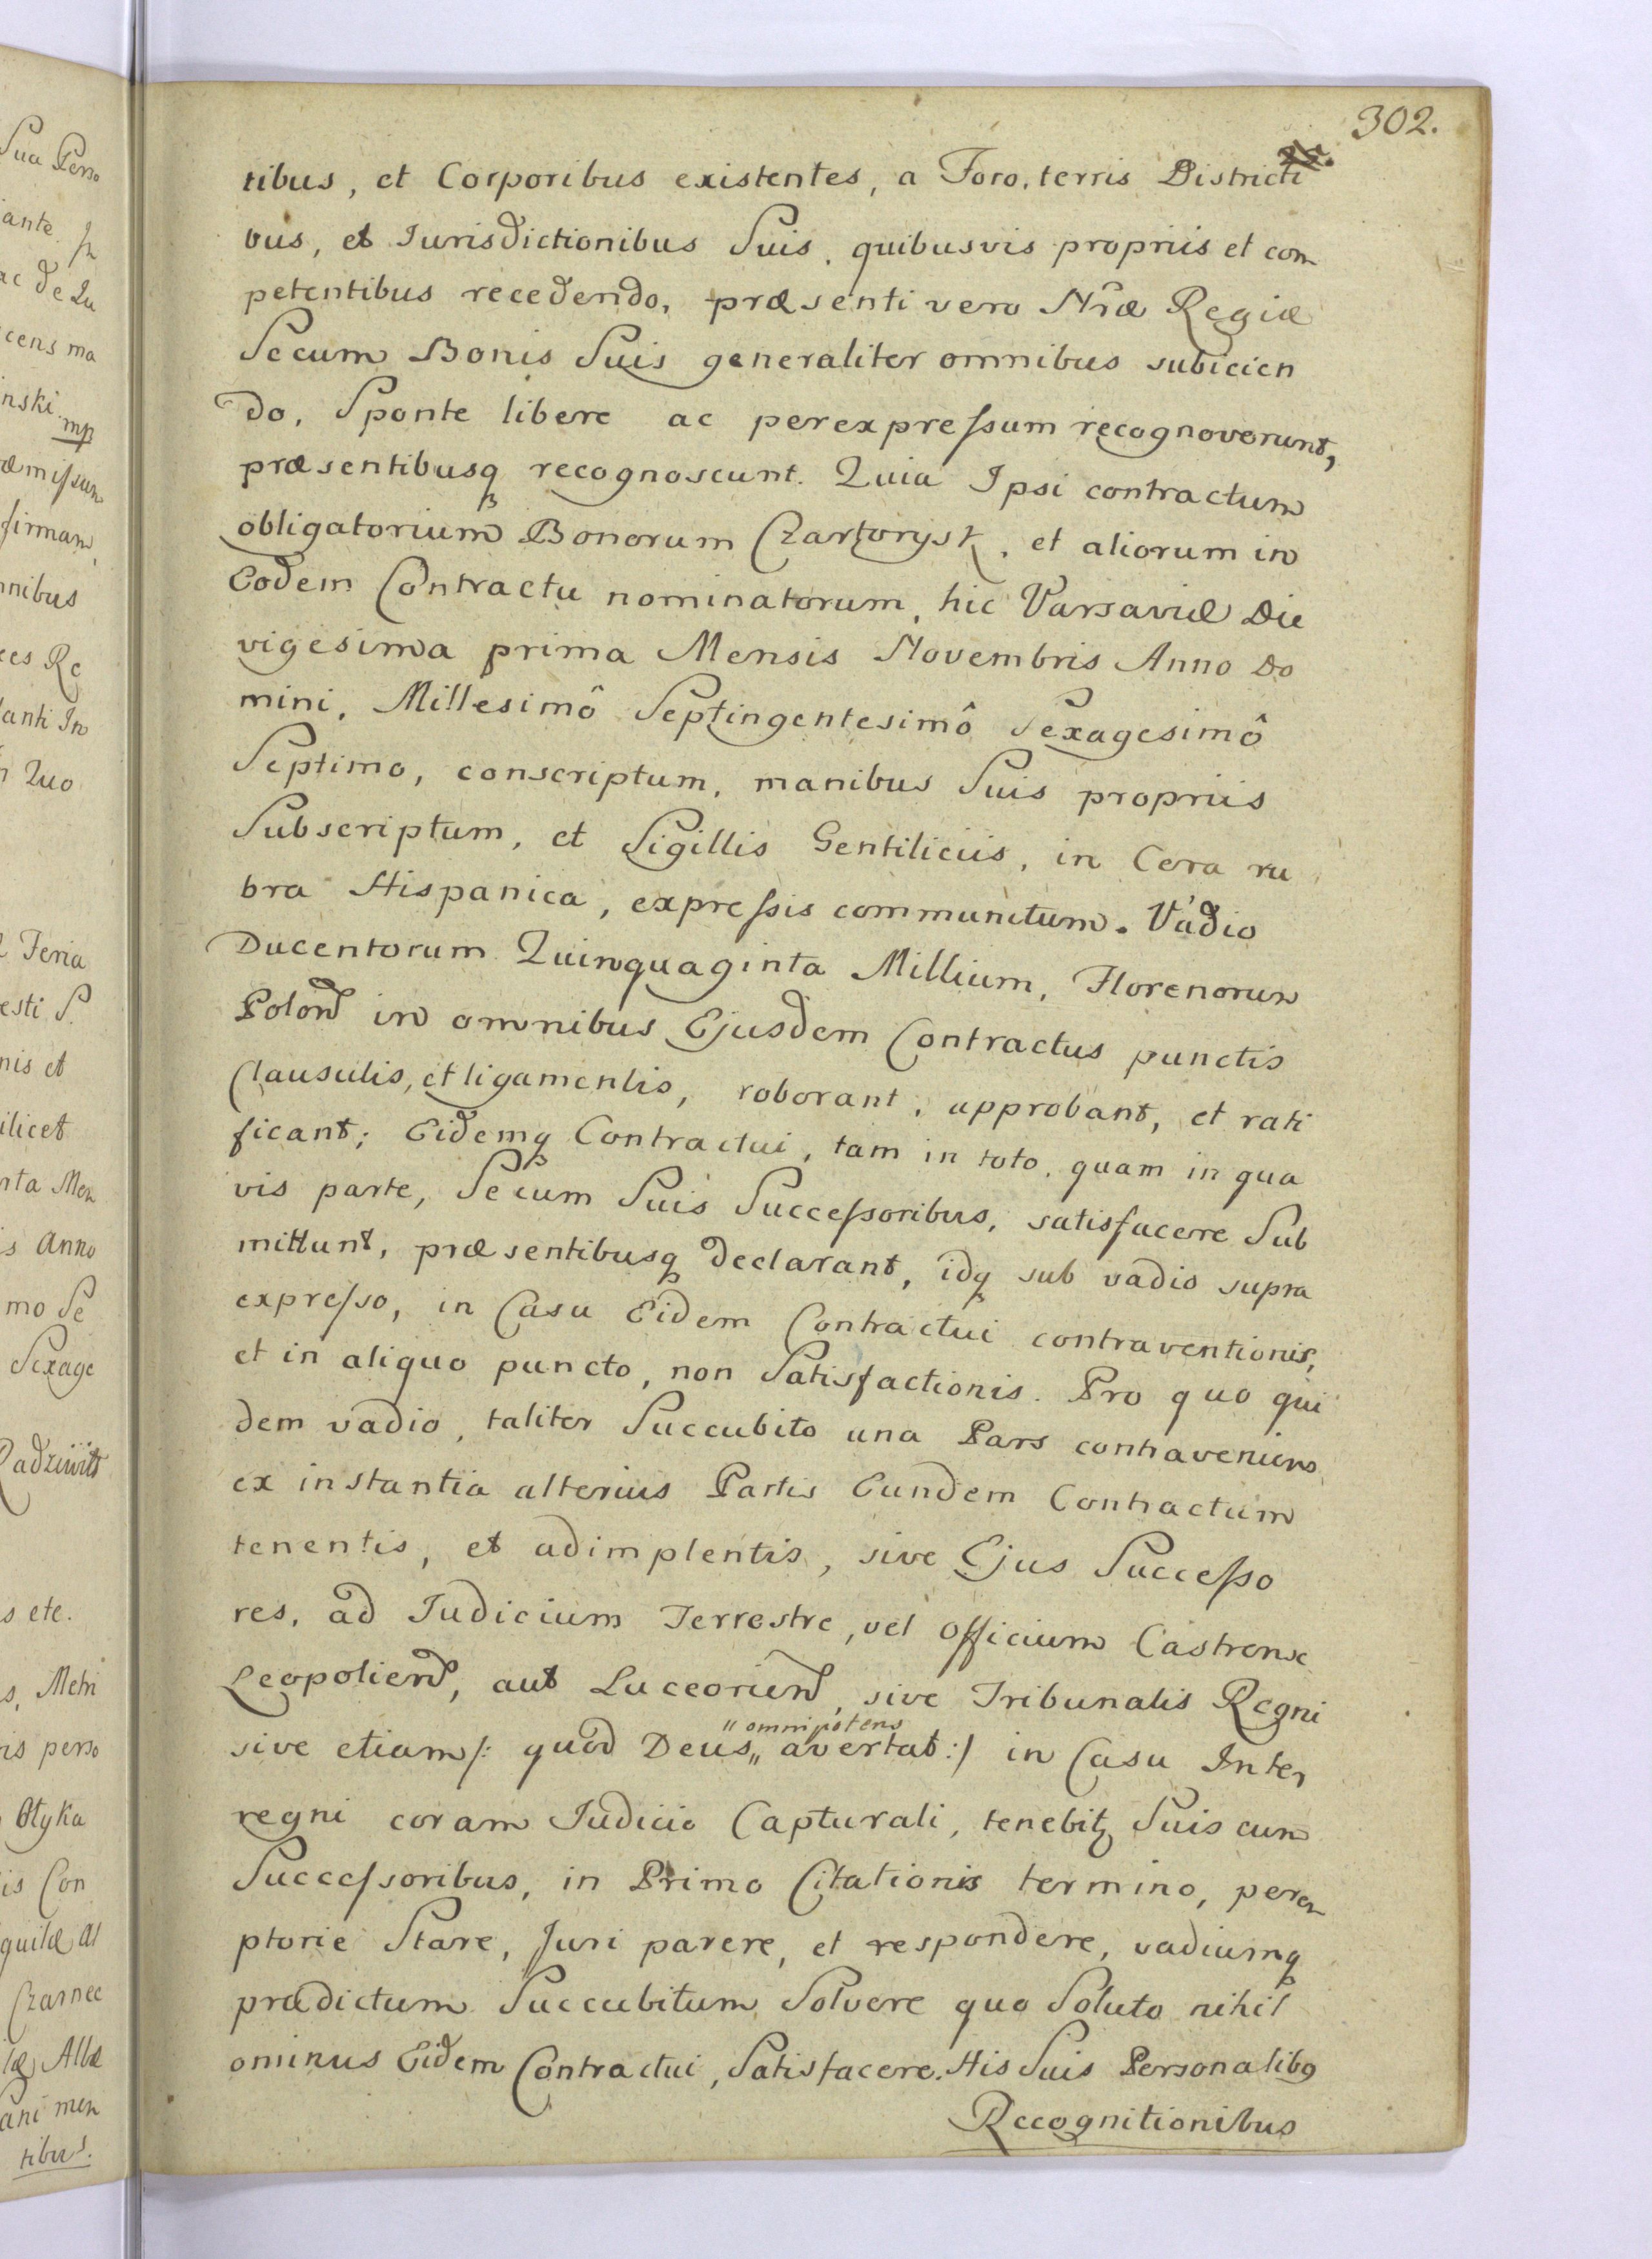 302.
tibus, et Corporibus existentes, a Foro, terris Districti
bus, et Iurisdictionibus Suis, quibusvis propriis et com
petentibus recedendo, præsenti vero Nræ Regiæ
Secum Bonis Suis generaliter omnibus subicien
do, Sponte libere ac perexpreſsum recognoverunt,
præsentibusq recognoscunt. Quia Ipsi contractum
obligatorium Bonorum Czartorysk, et aliorum in
Eodem Contractu nominatorum, hic Varsaviæ Die
vigesima prima Mensis Novembris Anno Do
mini, Millesimô Septingentesimô Sexagesimô
Septimo, conscriptum, manibus Suis propriis
Subscriptum, et Sigillis Gentiliciis, in Cera ru
bra Hispanica, expreſsis communitum. Vadio
Ducentorum Quinquaginta Millium, Florenorum
Polon in omnibus Ejusdem Contractus punctis
Clausulis, et ligamentis, roborant, approbant, et rati
ficant; Eidemq Contractui, tam in toto, quam in qua
vis parte, Secum Suis Succeſsoribus, satisfacere Sub
mittunt, præsentibusq declarant, idq sub vadio supra
expreſso, in Casu Eidem Contractui contraventionis,
et in aliquo puncto, non Satisfactionis. Pro quo qui
dem vadio, taliter Succubito una Pars contraveniens
ex instantia alterius Partis Eundem Contractum
tenentis, et adimplentis, sive Ejus Succeſso
res, ad Iudicium Terrestre, vel Officium Castrense
Leopolien, aut Luceorien, sive Tribunalis Regni
sive etiam /: quod Deus „ omnipotens „ avertat :/ in Casu Inter
regni coram Iudicio Capturali, tenebit Suis cum
Succeſsoribus, in Primo Citationis termino, perem
ptorie Stare, Juri parere, et respondere, vadiumq
prædictum Succubitum Solvere quo Soluto nihil
ominus Eidem Contractui, Satisfacere. His Suis Personalibq
Recognitionibus
Sua Perso
iante
ac de Lu
cens ma
inski mp
æmiſsum
firmam,
nnibus
ces Re
lanti In
Quo
Feria
esti S.
nis et
ilicet
nta Men
is Anno
mo Se
Sexage
Radziwiłł
s etc.
s, Metri
ris perso
Ołyka
is Con
quilæ Al
Czarnec
læ, Albæ
ani men
tibus.